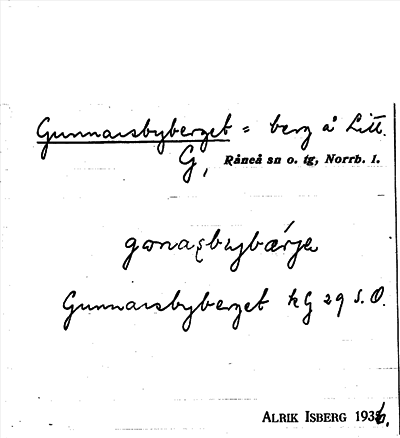 Gunnarsbyberget = berg å Litt.
G, Råneå sn o. tg, Norrb. l.
gɷnaʂbybærje
Gunnarsbyberget kG 29 S.O.
ALRIK ISBERG 1936.